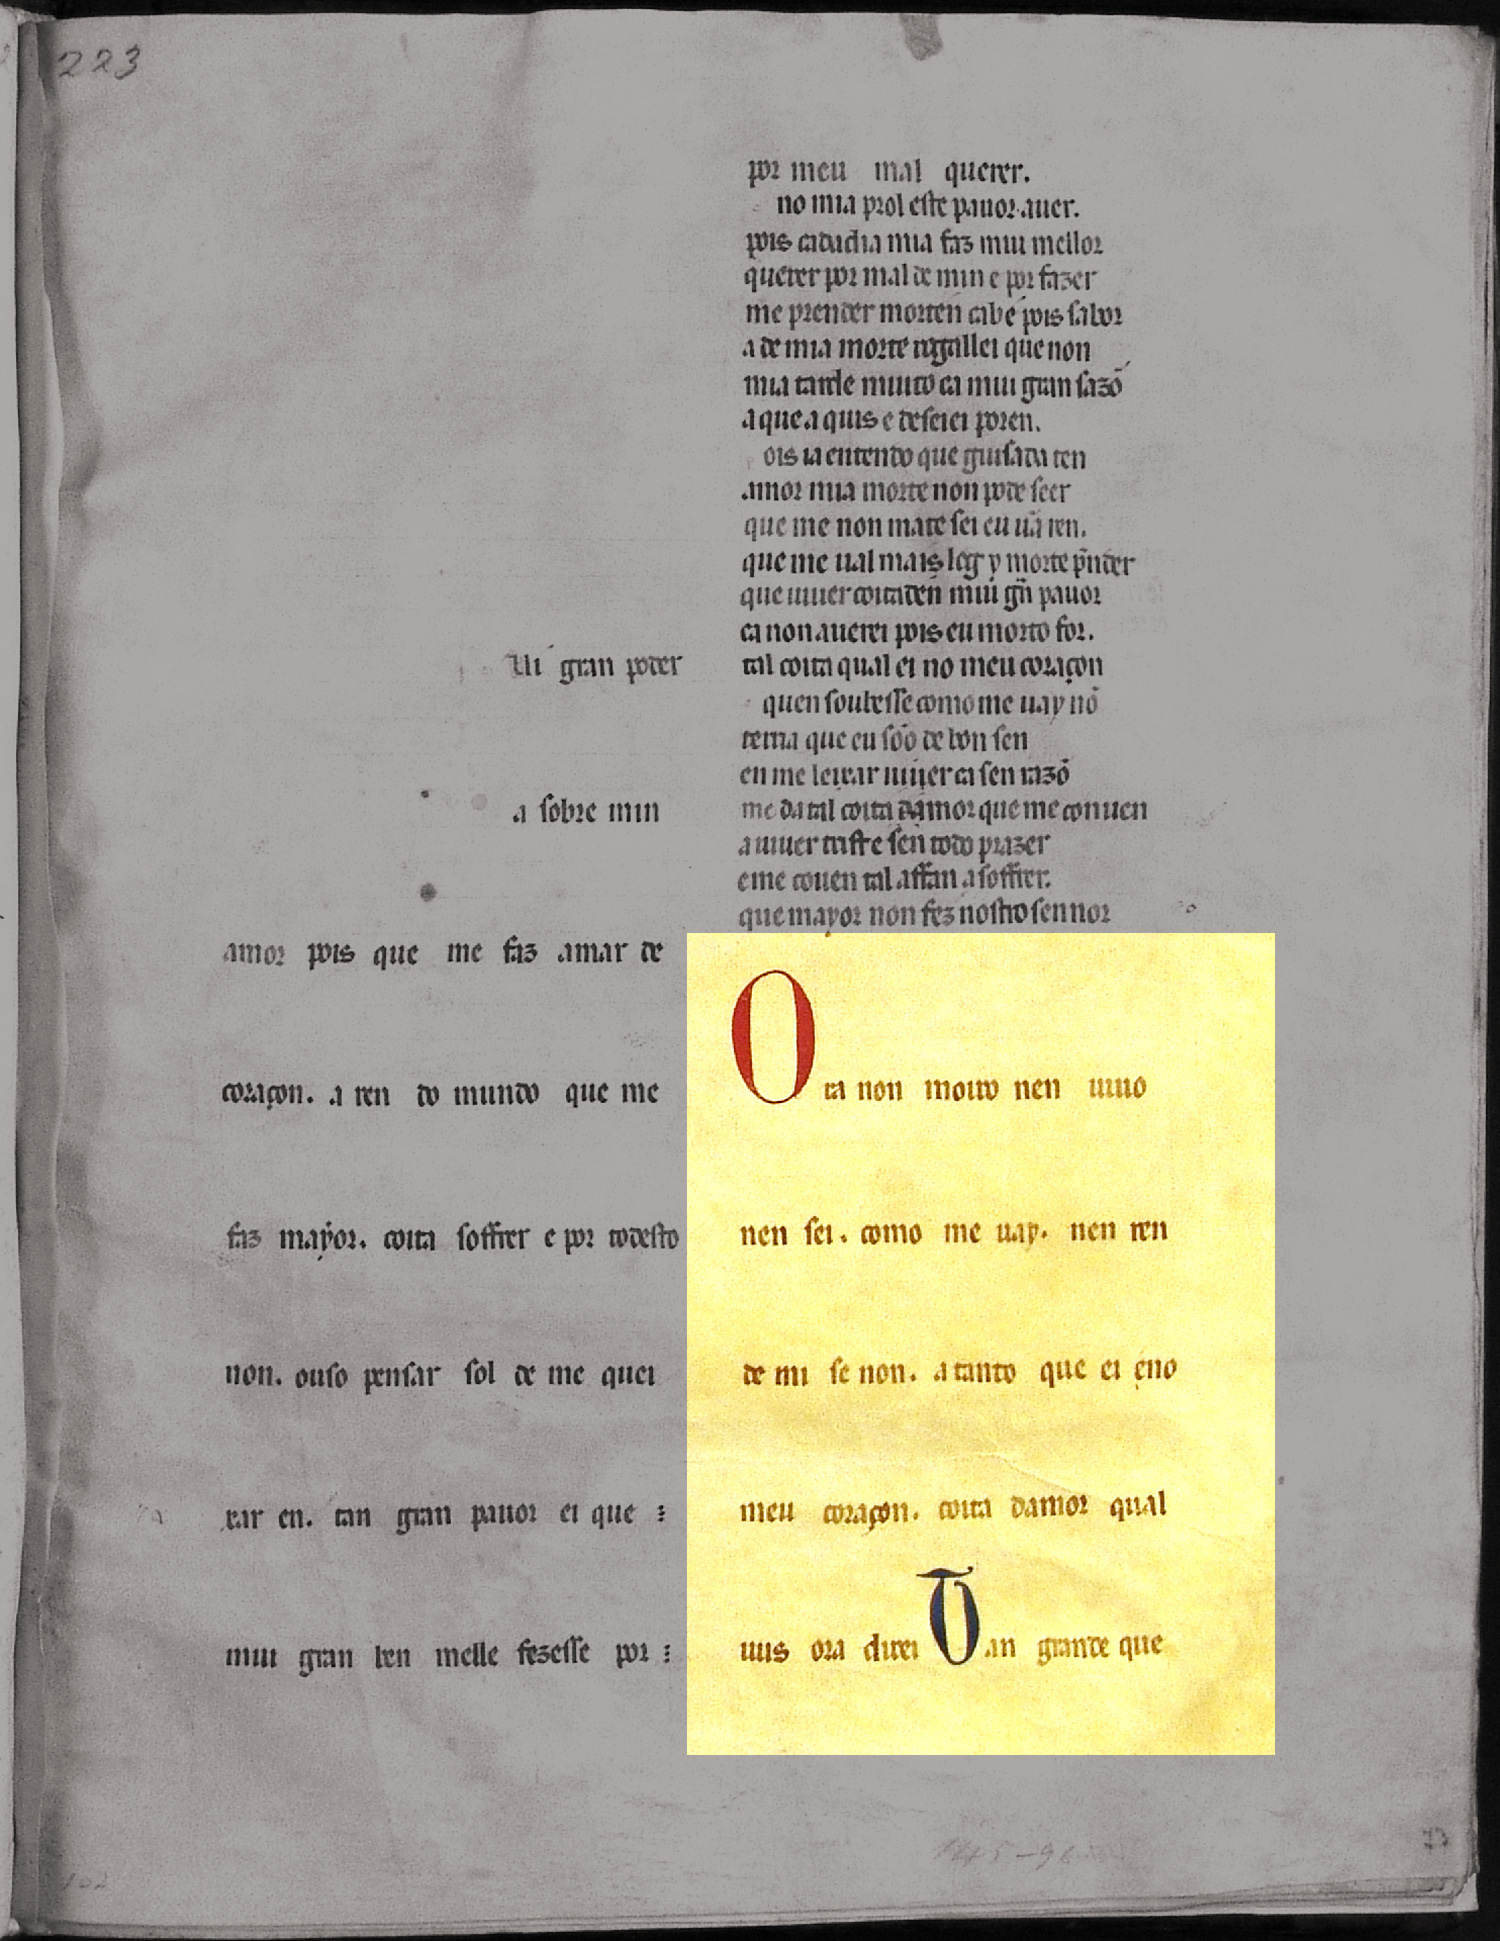 223
Ui gran poder
a sobre min
amor pois que me faz amar de
coraçon. a ren do mundo que me
faz mayor. coita soffrer e por todesto
non. ouso pensar sol de me quei
xar en. tan gran pauor ei que :
mui gran ben melle fezesse por :
por meu mal querer.
no mia prol este pauor auer.
pois cada dia mia faz mui mellor
querer por mal de min e por fazer
me prender morten cabe pois sabor
a de mia morte rogallei que non
mia tarde muito ca mui gran sazõ
a que a quis e deseiei poren.
ois ia entendo que guisada ten
amor mia morte non pode seer
que me non mate sei eu uã ren.
que me ual mais log y morte p̃nder
que uiuer coitaden mui gñ pauor
ca non auerei pois eu morto for.
tal coita qual ei no meu coraçon
quen soubesse como me uay nõ
terria que eu sõo de bon sen
en me leixar uiuer ca sen razõ
me da tal coita damor que me conuen
a uiuer triste sen todo prazer
e me conuen tal affan a soffrer.
que mayor non fez nostro sennor
Ora non moiro nen uiuo
nen sei. como me uay. nen ren
de mi se non. a tanto que ei eno
meu coraçon. coita damor qual
uus ora direi Tan grande que
145-96
102